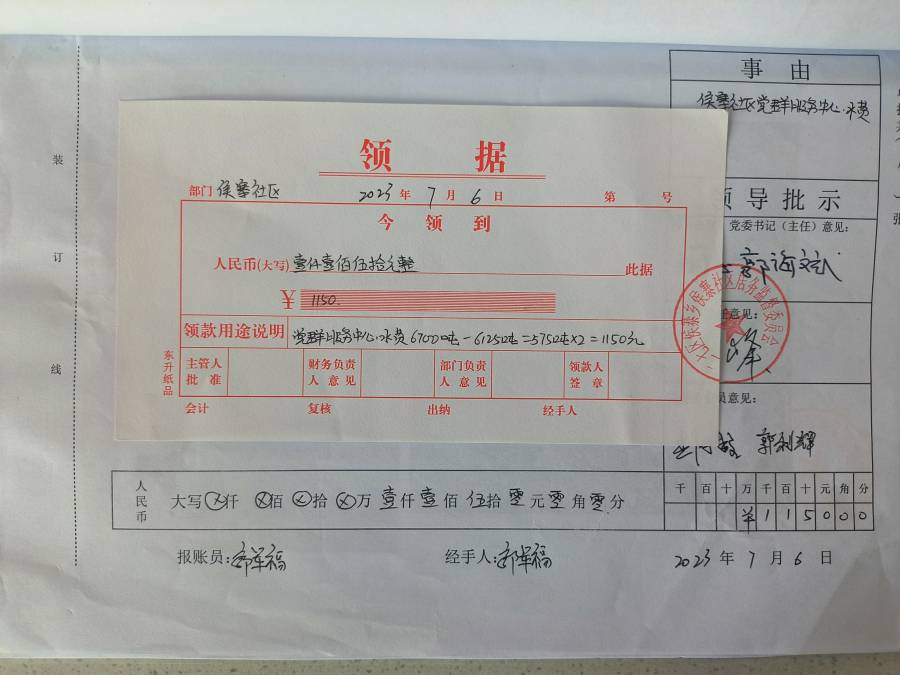 装
订
线
事由
侯寨社区党群服务中心水费
领导批示
党委书记(主任)意见:
意见:
员意见:
郭利辉
领据
部门 侯寨社区 2023年7月6日 第 号
今领到
人民币(大写)壹仟壹佰伍拾元整 此据
¥ 1150.
领款用途说明 党群服务中心.水费6700吨-6125吨=575吨×2=1150元
主管人批准 财务负责人意见 部门负责人意见 领款人签章
会计 复核 出纳 经手人
东升纸品
人民币 大写 ⊗仟 ⊗佰 ⊗拾 ⊗万 壹仟 壹佰 伍拾 零元 零角 零分
千百十万千百十元角分
¥115000
报账员: 经手人: 2023年7月6日